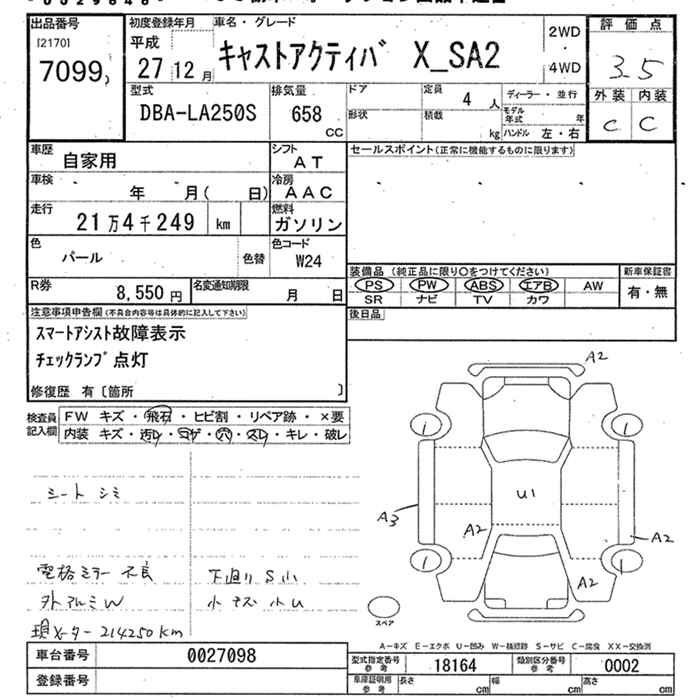 出品番号
[2170]
7099
初度登録年月
平成
27 12 月
車名・グレード
キャストアクティバ X_SA2
2WD
4WD
評価点
3.5
外装 内装
C C
型式
DBA-LA250S
排気量
658
CC
ドア
形状
定員
4 人
積載
kg
ディーラー・並行
モデル年式 年
ハンドル 左・右
車歴
自家用
シフト
AT
車検
年 月( 日)
冷房
AAC
走行
21万4千249 km
燃料
ガソリン
色
パール
色替
色コード
W24
R券
8,550 円
名変通知期限
月 日
セールスポイント(正常に機能するものに限ります)
装備品 (純正品に限り○をつけてください)
PS PW ABS エアB AW
SR ナビ TV カワ
新車保証書
有・無
後日品
注意事項申告欄(不具合内容等は具体的に記入して下さい)
スマートアシスト故障表示
チェックランプ点灯
修復歴 有〔箇所 〕
検査員記入欄
FW キズ・飛石・ヒビ割・リペア跡・×要
内装 キズ・汚レ・コゲ・穴・スレ・キレ・破レ
シート シミ
電格ミラー不良
外アルミW
現メーター214250km
下廻りS小
小キズ小U
A2
U1
A3
A2
A2
A2
スペア
A-キズ E-エクボ U-凹み W-補修跡 S-サビ C-腐食 XX-交換済
車台番号
0027098
登録番号
型式指定番号
参考
18164
類別区分番号
参考
0002
車庫証明用
参考
長さ cm
幅 cm
高さ cm